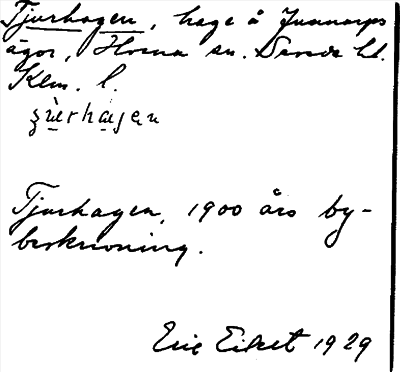 Tjurhagen, hage å Junnarps
ägor, Horna sn. Sevede hd.
Kalm. l.
ʒùerhagen
Tjurhagen, 1900 års by-
beskrivning.
Eric Eiket 1929